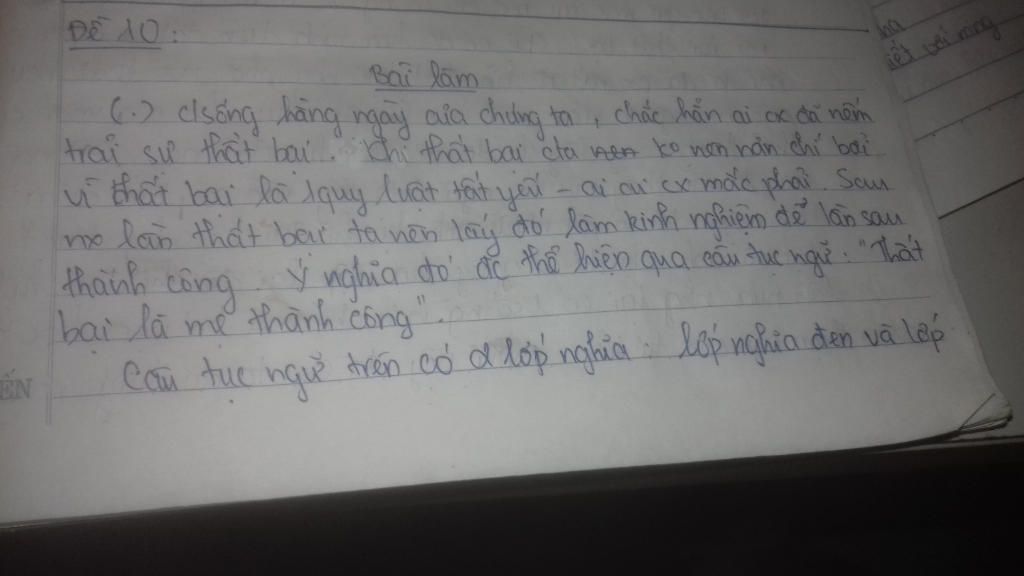 Đề 10:
Bài làm
(.) c/sống hàng ngày của chúng ta, chắc hẳn ai cx đã nếm
trải sự thất bại. Khi thất bại cta nên ko nên nản chí bởi
vì thất bại là 1 quy luật tất yếu - ai ai cx mắc phải. Sau
mx lần thất bại ta nên lấy đó làm kinh nghiệm để lần sau
thành công. Ý nghĩa đó đc thể hiện qua câu tục ngữ: "Thất
bại là mẹ thành công".
Câu tục ngữ trên có 2 lớp nghĩa: lớp nghĩa đen và lớp
ẾN
với mọng